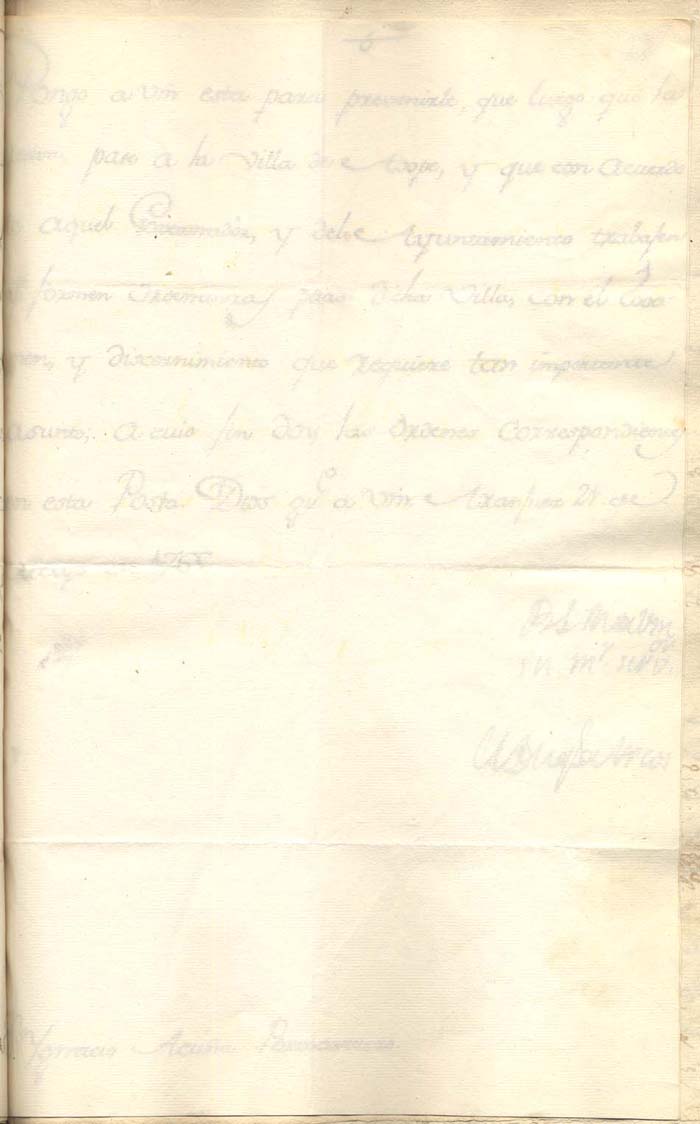 6
Pongo a Vm esta para prevenirle, que luego que la
pase a la Villa de Lope, y que con acuerdo
aquel Governador, y dele Ayuntamiento trabajen
formen Ordenanzas para dicha Villa, con el
men, y discernimiento que requiere tan importante
asunto; a cuio fin doy las ordenes correspondientes
en esta Posta. Dios gue a Vm Aranjuez 21 de
Mayo de
B L M de Vm
su mr servor
El Duque de Arcos
Ygnacio Acuña